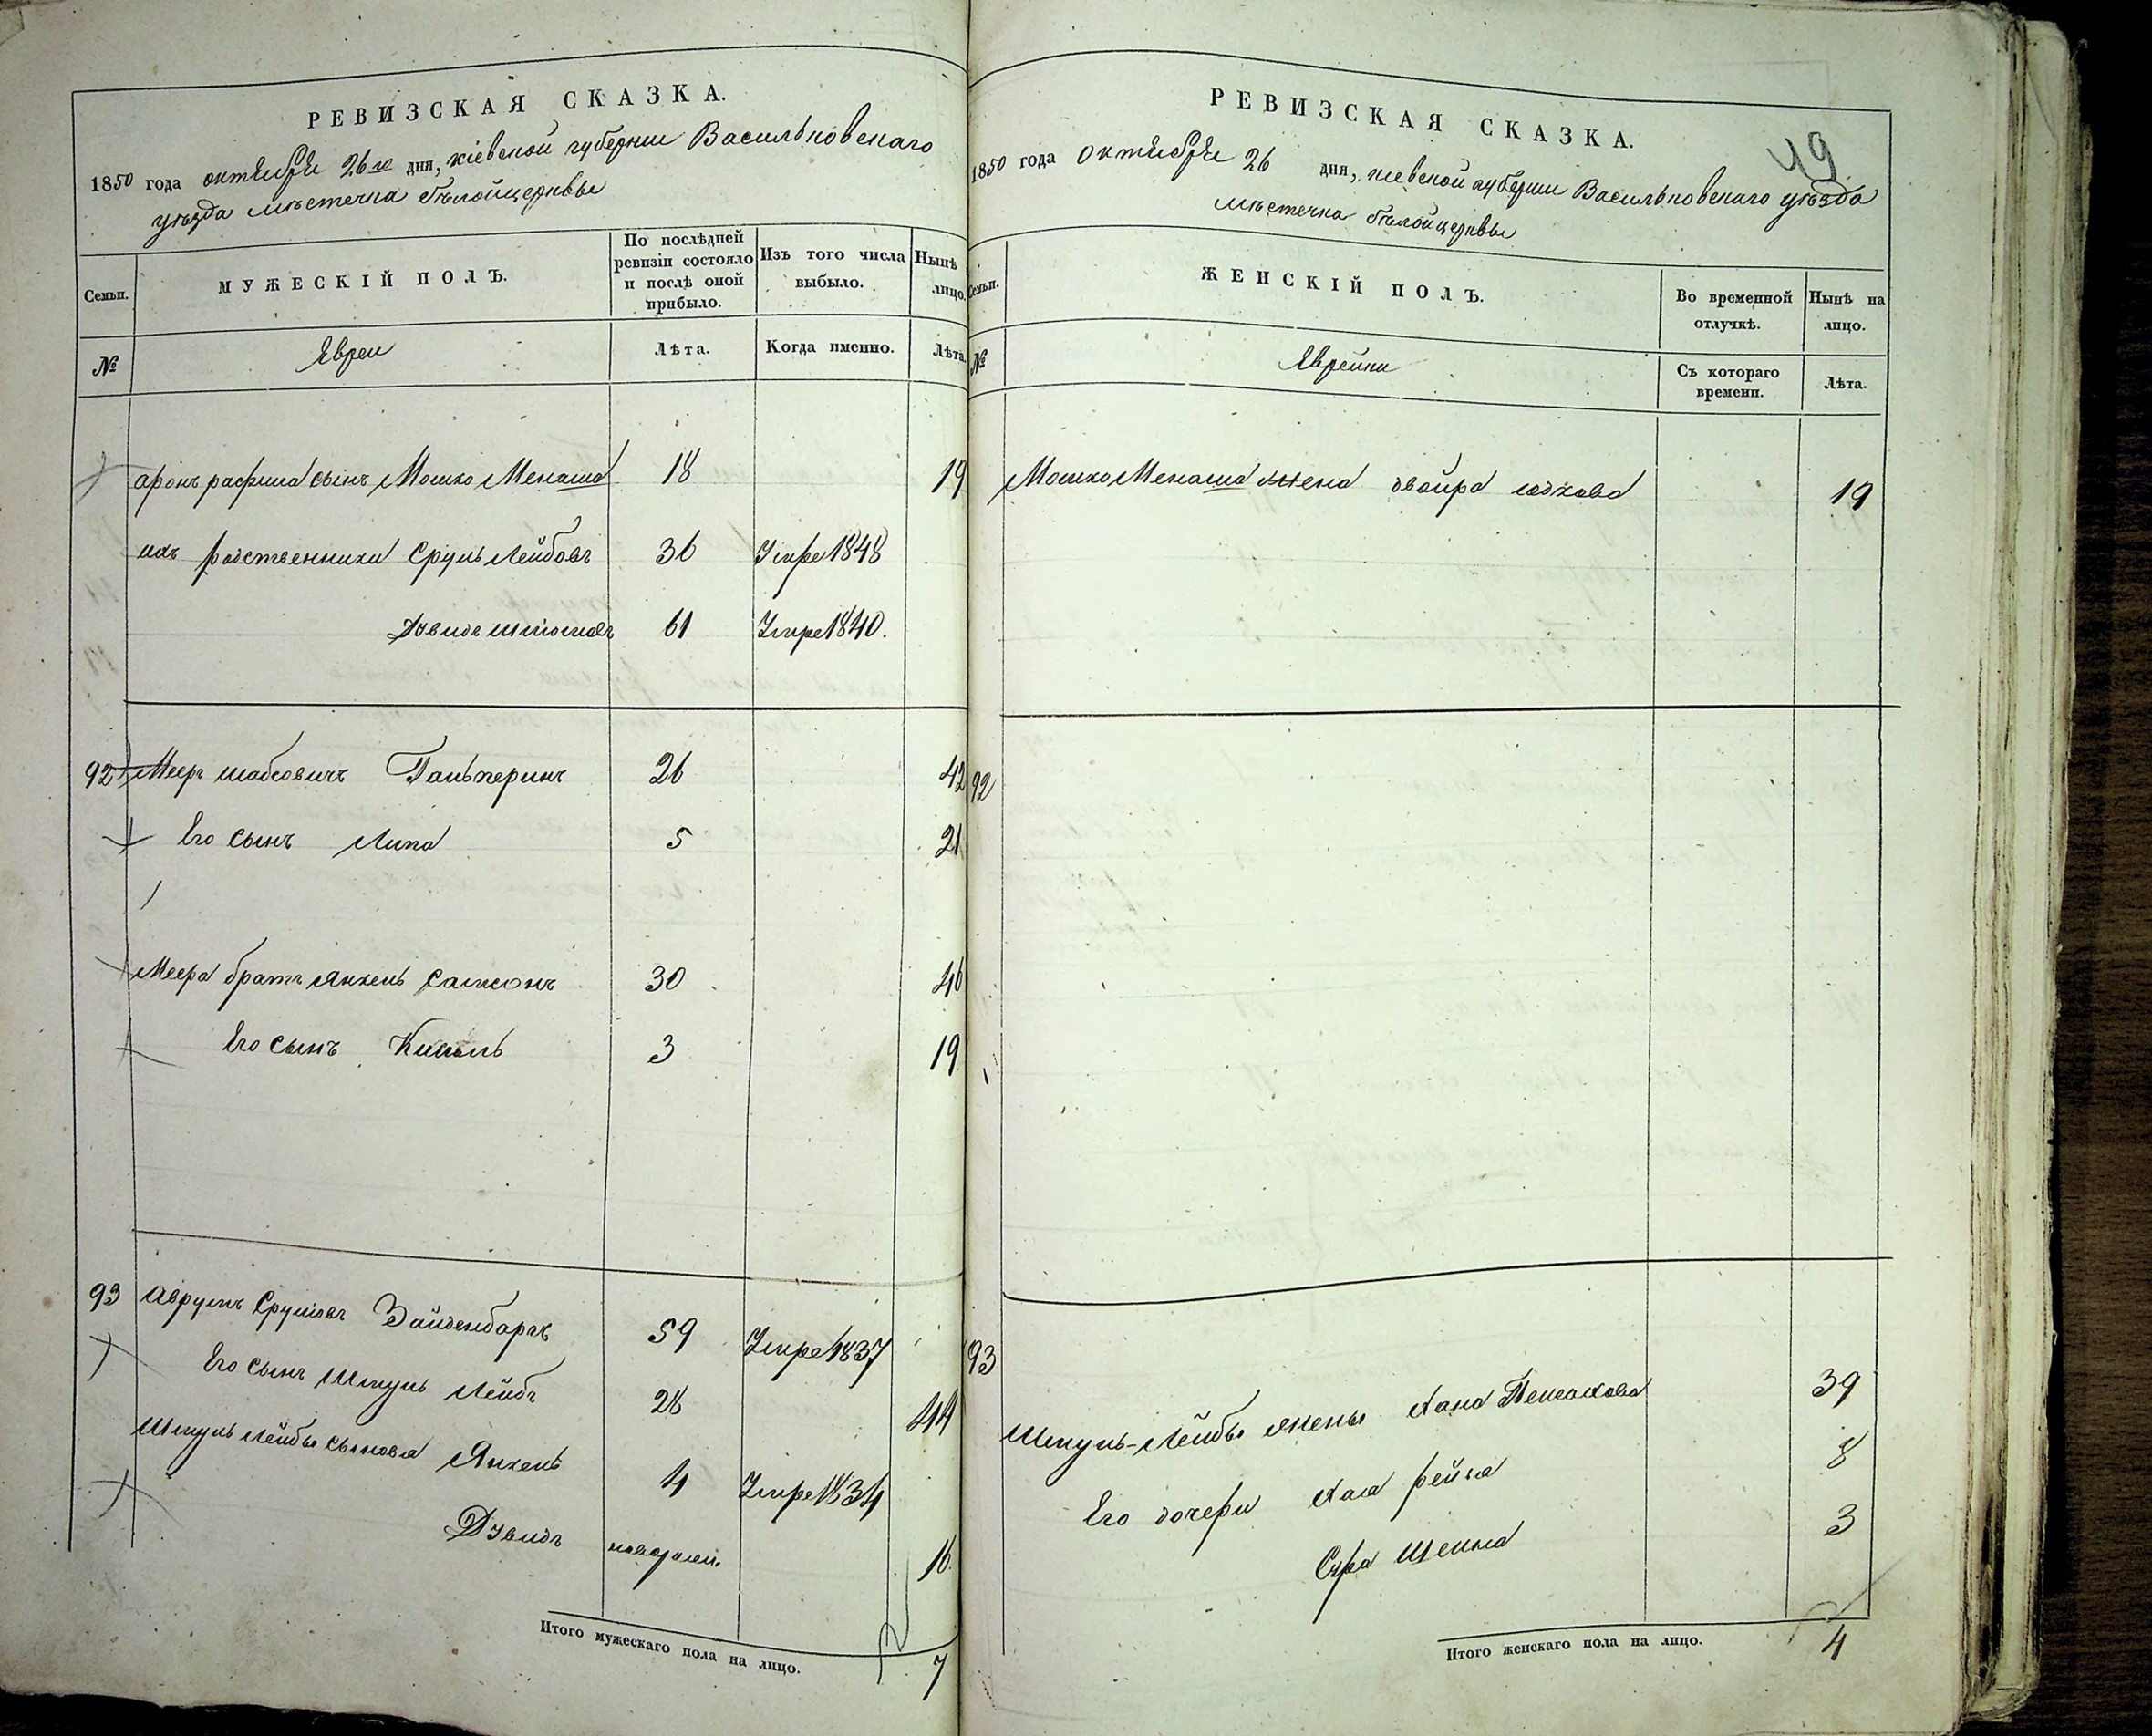 РЕВИЗСКАЯ СКАЗКА.
1850 года октября 26го дня, кіевской губерніи Васильковскаго
уѣзда мѣстечка бѣлойцерквы
Семьи. МУЖЕСКІЙ ПОЛЪ. По послѣдней ревизіи состояло и послѣ оной прибыло. Изъ того числа выбыло. Нынѣ лицо.
№ Евреи Лѣта. Когда именно. Лѣта
Аронъ сынъ Мошко Менаша 18 19
ихъ родственники Сруль Лейбовъ 36 Умре 1848
Дувидъ 61 Умре 1840.
92 Меер шабсовичъ Гальперинъ 26 42
Его сынъ Липа 5 21
Меера братъ Янкель Самсонъ 30 46
Его сынъ 3 19
93 Аврумъ Срулювъ Зайденбаргъ 59 Умре 1837
Его сынъ Шмуль Лейбъ 28 44
Шмуль Лейбы сыновья Янкель 4 Умре 1834
Дувидъ новорожд. 16
Итого мужескаго пола на лицо. 7
49
РЕВИЗСКАЯ СКАЗКА.
1850 года октября 26 дня, кіевской губерніи Васильковскаго уѣзда
мѣстечка бѣлойцерквы
Семьи. ЖЕНСКІЙ ПОЛЪ. Во временной отлучкѣ. Нынѣ на лицо.
№ Еврейки Съ котораго времени. Лѣта.
Мошко Менаша жена двойра юдкова 19
92
93
Шмуль-Лейбы жены Хана 39
Его дочери Хая рейза 8
Сура Шейна 3
Итого женскаго пола на лицо. 4